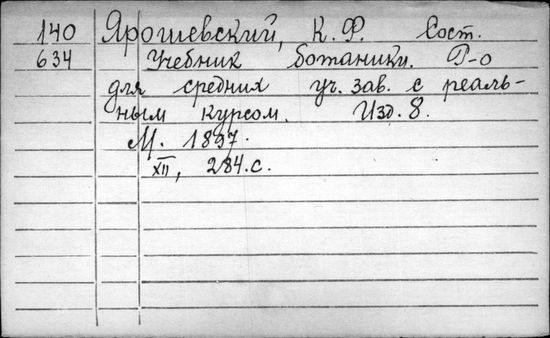 140 Ярошевский, К. Ф. Сост.
634 Учебник ботаники. Р-о
для средних уч. зав. с реаль-
ным курсом. Изд. 8.
М. 1897.
XII, 284.с.